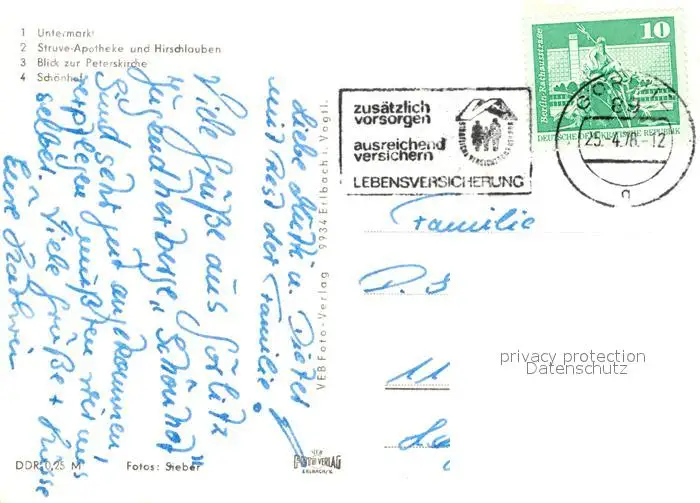 1 Untermarkt
2 Struve-Apotheke und Hirschlauben
3 Blick zur Peterskirche
4 Schönhof
Liebe Mutti u. Dieter
und Rest der Familie!
Viele Grüße aus Görlitz
Jugendherberge „Schönhof"
Sind sehr gut angekommen!
verpflegen müßten wir uns
selber. Viele Grüße + Küsse
Eure
DDR 0,25 M Fotos: Sieber
VEB Foto-Verlag 9934 Erlbach i. Vogtl.
FOTO VERLAG
ERLBACH/V.
zusätzlich
vorsorgen
ausreichend
versichern
LEBENSVERSICHERUNG
STAATLICHE VERSICHERUNG DER DDR
10
Berlin, Rathausstraße
DEUTSCHE DEMOKRATISCHE REPUBLIK
89
25.-4.78.-12
n
Familie
D. S
privacy protection
Datenschutz